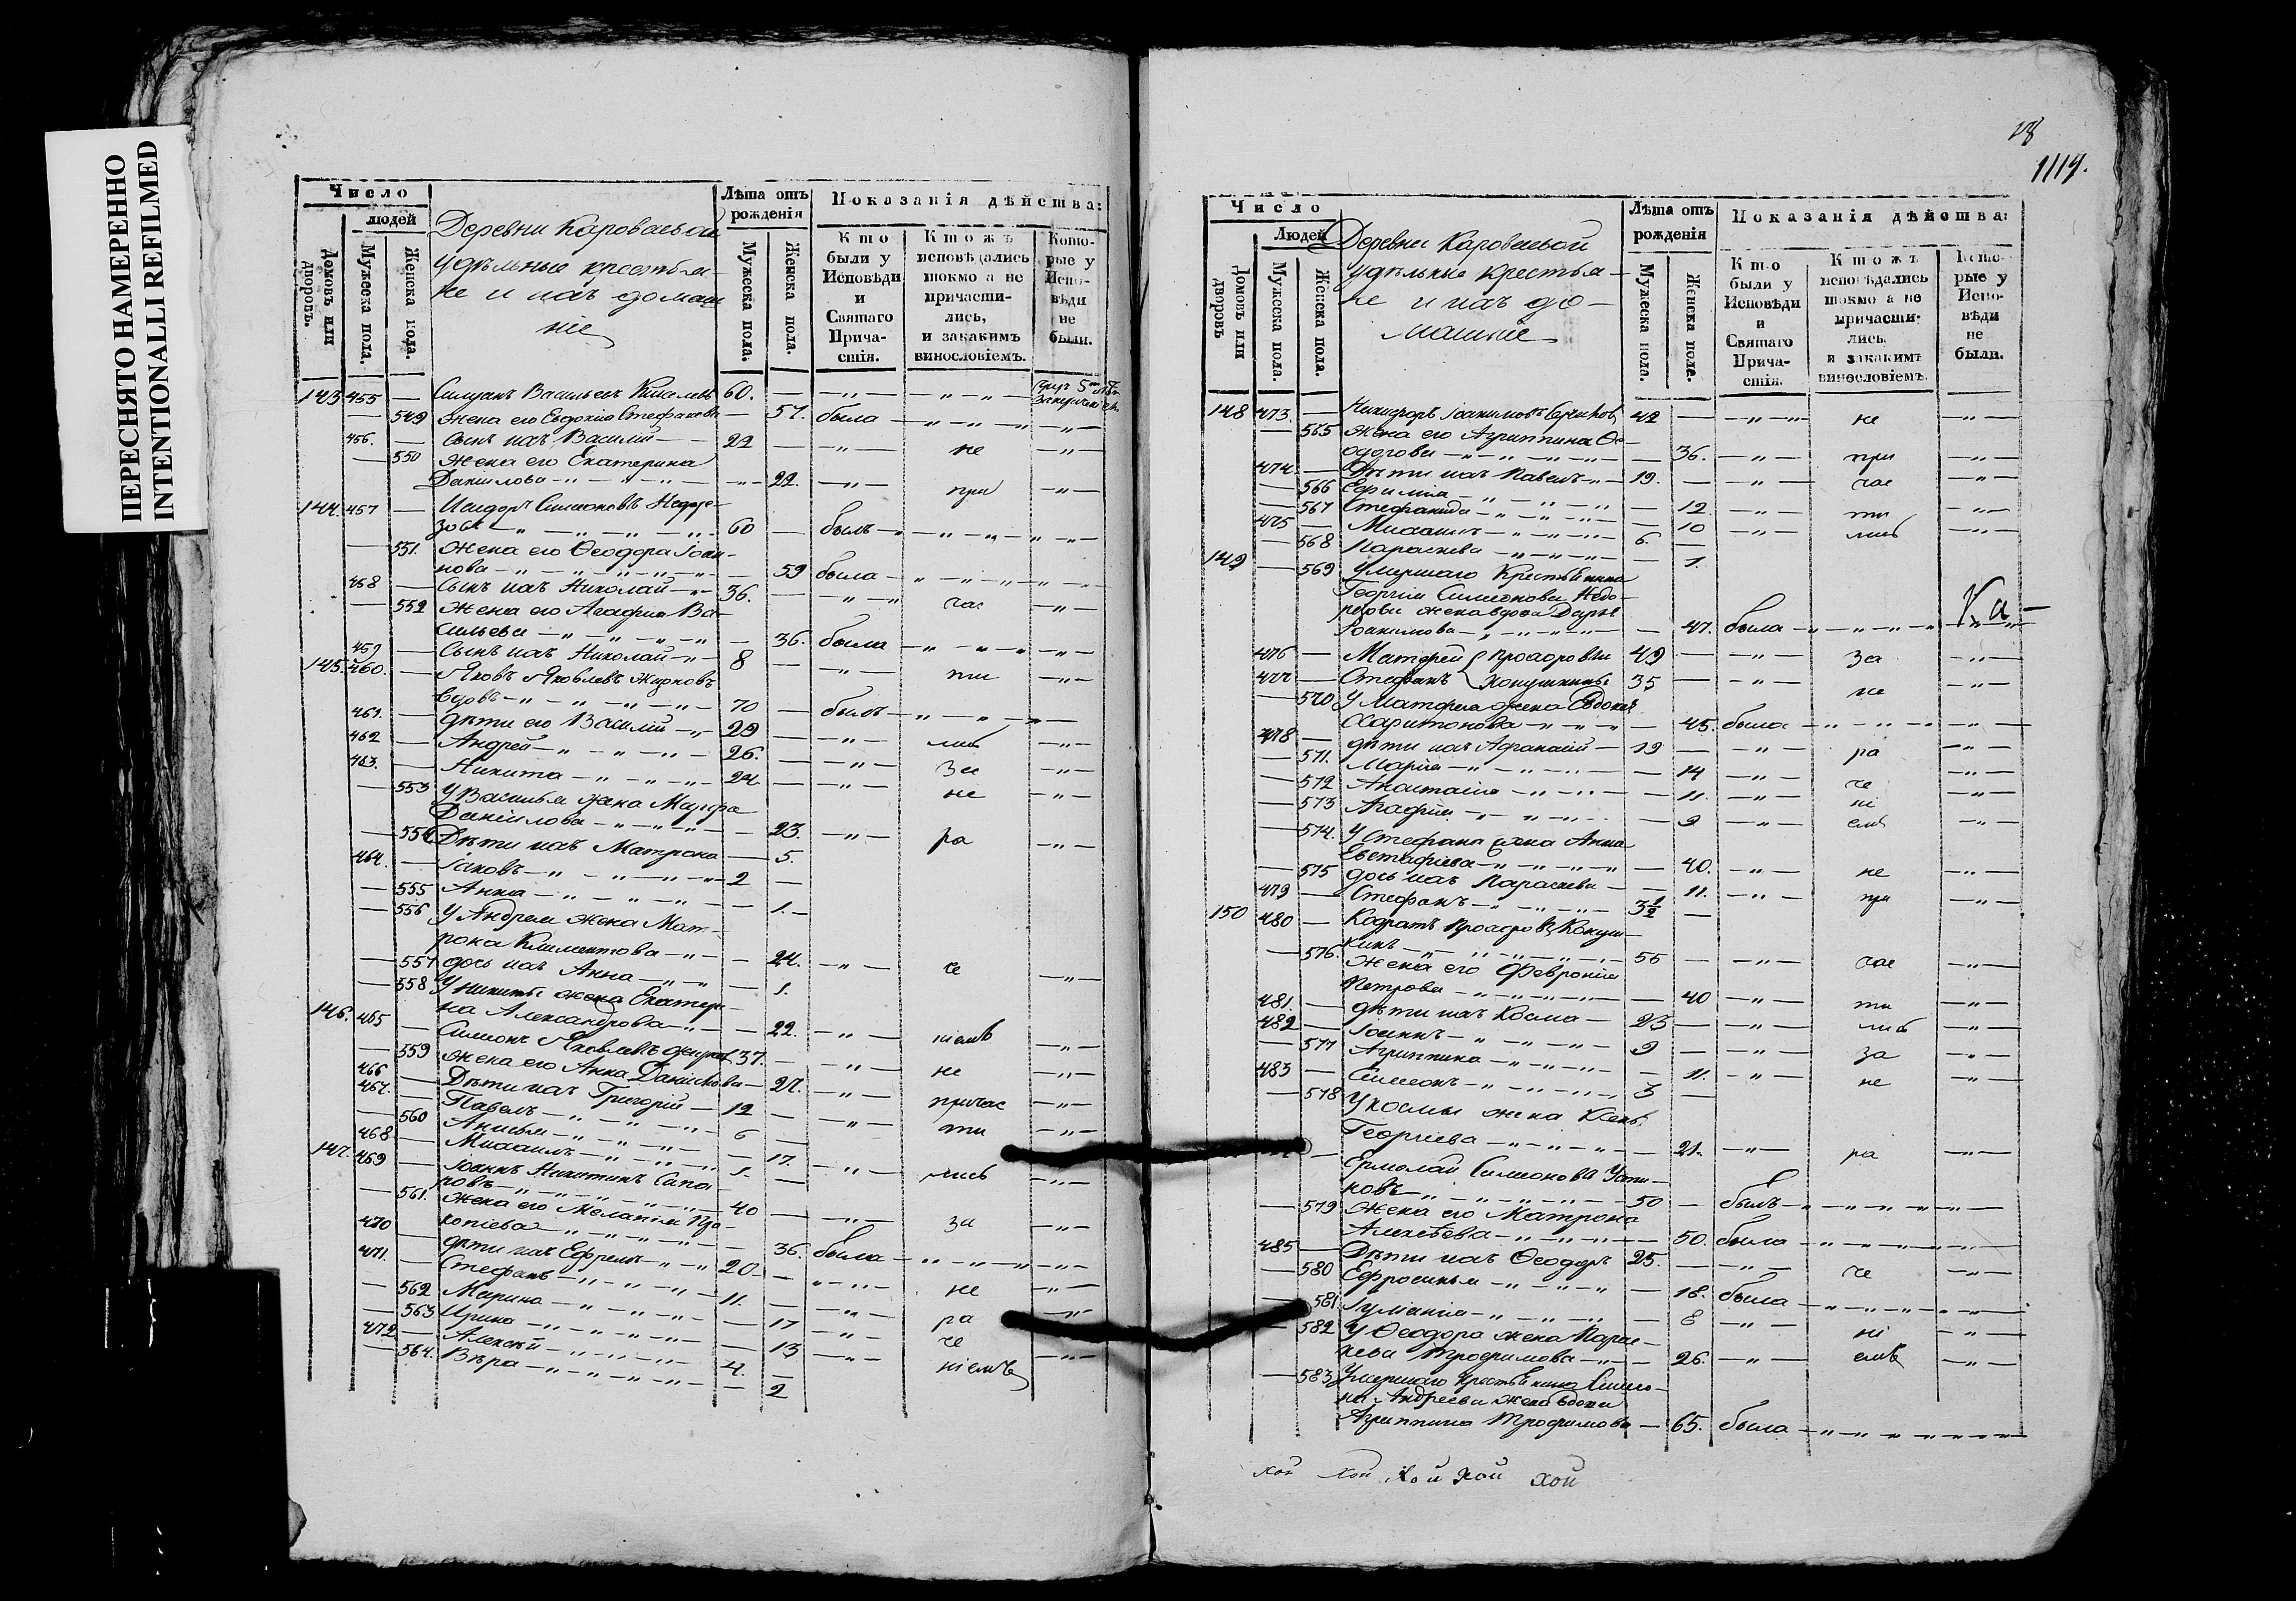 ПЕРЕСНЯТО НАМЕРЕННО
INTENTIONALLI REFILMED
Число
людей
Домовъ или дворовъ.
Мужеска пола.
Женска пола.
Деревни Короваевой
удѣльные крестья-
не и ихъ домаш
ніе
Лѣта отъ рожденія
Мужеска пола.
Женска пола.
Показанія дѣйства:
Кто были у Исповѣди и Святаго Причастія.
Ктожъ исповѣдались токмо а не причастились, и закакимъ винословіемъ.
Которые у Исповѣди не были.
143 455 — 60. —
— 549 жена его Евдокія Стефанова — 57. была
456. — Сынъ ихъ Василій — 22 — не
— 550 жена его Екатерина
Данилова — 22. при
144. 457 — Исидоръ Симеоновъ Недоре-
зовъ 60 — былъ
— 551. жена его Ѳеодора Іоан-
нова — 59 была
458 — Сынъ ихъ Николай 36. — час
— 552 жена его Агафія Ва-
сильева — 36. была
459 — Сынъ ихъ Николай 8 — ти
145. 460. — Яковъ Яковлевъ Жирновъ
вдовъ 70 — былъ
461. — дѣти его Василій 29 — лис
462 — Андрей 26. — За
463. — Никита 24 — не
— 553 У Василья жена Марфа
Данилова — 23. ра
— 554 Дѣти ихъ Матрона — 5.
464. — Іаковъ 2 —
— 555 Анна — 1.
— 556 У Андрея жена Мат-
рона Климентова — 24. че
— 557 дочь ихъ Анна — 1.
— 558 У Никиты жена Екатери-
на Александрова — 22. ніемъ
146. 465 — Симеонъ Яковлевъ 37. — не
— 559 жена его Анна Данилова — 27. причас
466 — Дѣти ихъ Григорій 12 — ти
467. — Павелъ 6 —
— 560 Анисья — 17. лись
468 — Михаилъ 1. —
147. 469 — Іоаннъ Никитинъ Сапа
ровъ 40 — за
— 561. жена его Меланія Про-
копіева — 36. была
470 — дѣти ихъ Ефремъ 20 — не
471. — Стефанъ 11. — ра
— 562 Марина — 17 че
— 563 Ирина — 13 ніемъ
472 — Алексѣй 4. —
— 564. Вѣра — 2
1119.
Число
Людей
Домовъ или дворовъ
Мужеска пола.
Женска пола.
Деревни Короваевой
удѣльные крестья-
не и ихъ до-
машніе
Лѣта отъ рожденія
Мужеска пола.
Женска пола.
Показанія дѣйства:
Кто были у Исповѣди и Святаго Причастія.
Ктожъ исповѣдались токмо а не причастились, и закакимъ винословіемъ.
Которые у Исповѣди не были.
148 473. — Никифоръ Іоакимовъ 42 — не
— 565 жена его Агриппина Ѳе-
одорова — 36. при
474. — Дѣти ихъ Павелъ 19. — час
— 566 Ефимія — 12. ти
— 567 Стефанида — 10 лис
475 — Михаилъ 6. —
— 568 Параскева — 1.
149 — 569 Умершаго Крестьянина
Георгія Симеонова Недо-
резова жена вдова Дарья
Іоакимова — 47. была
476 — Матфей Прохоровы 49 — за
477 — Стефанъ Кокушкины 35 — не
— 570 У Матфея жена Евдокія
Харитонова — 45. была
478 — дѣти ихъ Афанасій 19 — ра
— 571. Марія — 14 че
— 572 Анастасія — 11. ні
— 573 Агафія — 9 емъ
— 574. У Стефана жена Анна
Евстафіева — 40. не
— 575 дочь ихъ Параскева — 11. при
479 — Стефанъ 3½ —
150 480 — Кодратъ Прохоровъ Кокуш-
кинъ 55 — час
— 576. Жена его Февронія
Петрова — 40 ти
481. — дѣти ихъ Косма 23 — лис
482 — Іоаннъ 9 — за
— 577 Агриппина — 11. не
483 — Симеонъ 3 —
— 578 У Космы жена Ксен.
Георгіева — 21. ра
Ермолай Симеоновъ Усти-
новъ 50 — былъ
— 579 жена его Матрона
Алексѣева — 50. была
485 — Дѣти ихъ Ѳеодоръ 25. — че
— 580 Ефросинья — 18. была
581. Іуліанія — 8 ні
582 У Ѳеодора жена Парас-
кева Трофимова — 26. емъ
— 583 Умершаго крестьянина Симео-
на Андреева жена вдова
Агриппина Трофимова — 65. была
хой хой хой хой хой